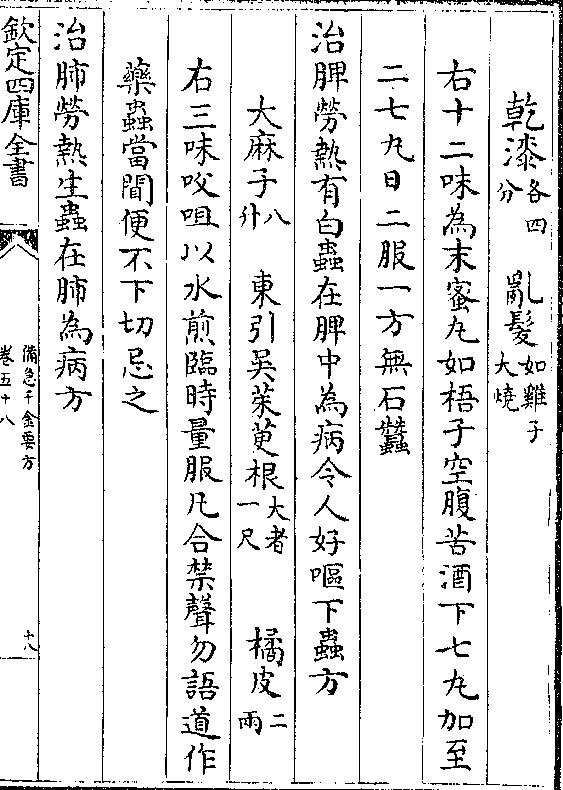 乾漆各四分　亂髮如雞子大燒
右十二味為末蜜丸如梧子空腹苦酒下七丸加至
二七丸日二服一方無石蠶
治脾勞熱有白蟲在脾中為病令人好嘔下蟲方
大麻子八升　東引吳茱萸根大者一尺　橘皮二兩
右三味㕮咀以水煎臨時量服凡合禁聲勿語道作
藥蟲當聞便不下切忌之
治肺勞熱生蟲在肺為病方
欽定四庫全書
備急千金要方
卷五十八
十八